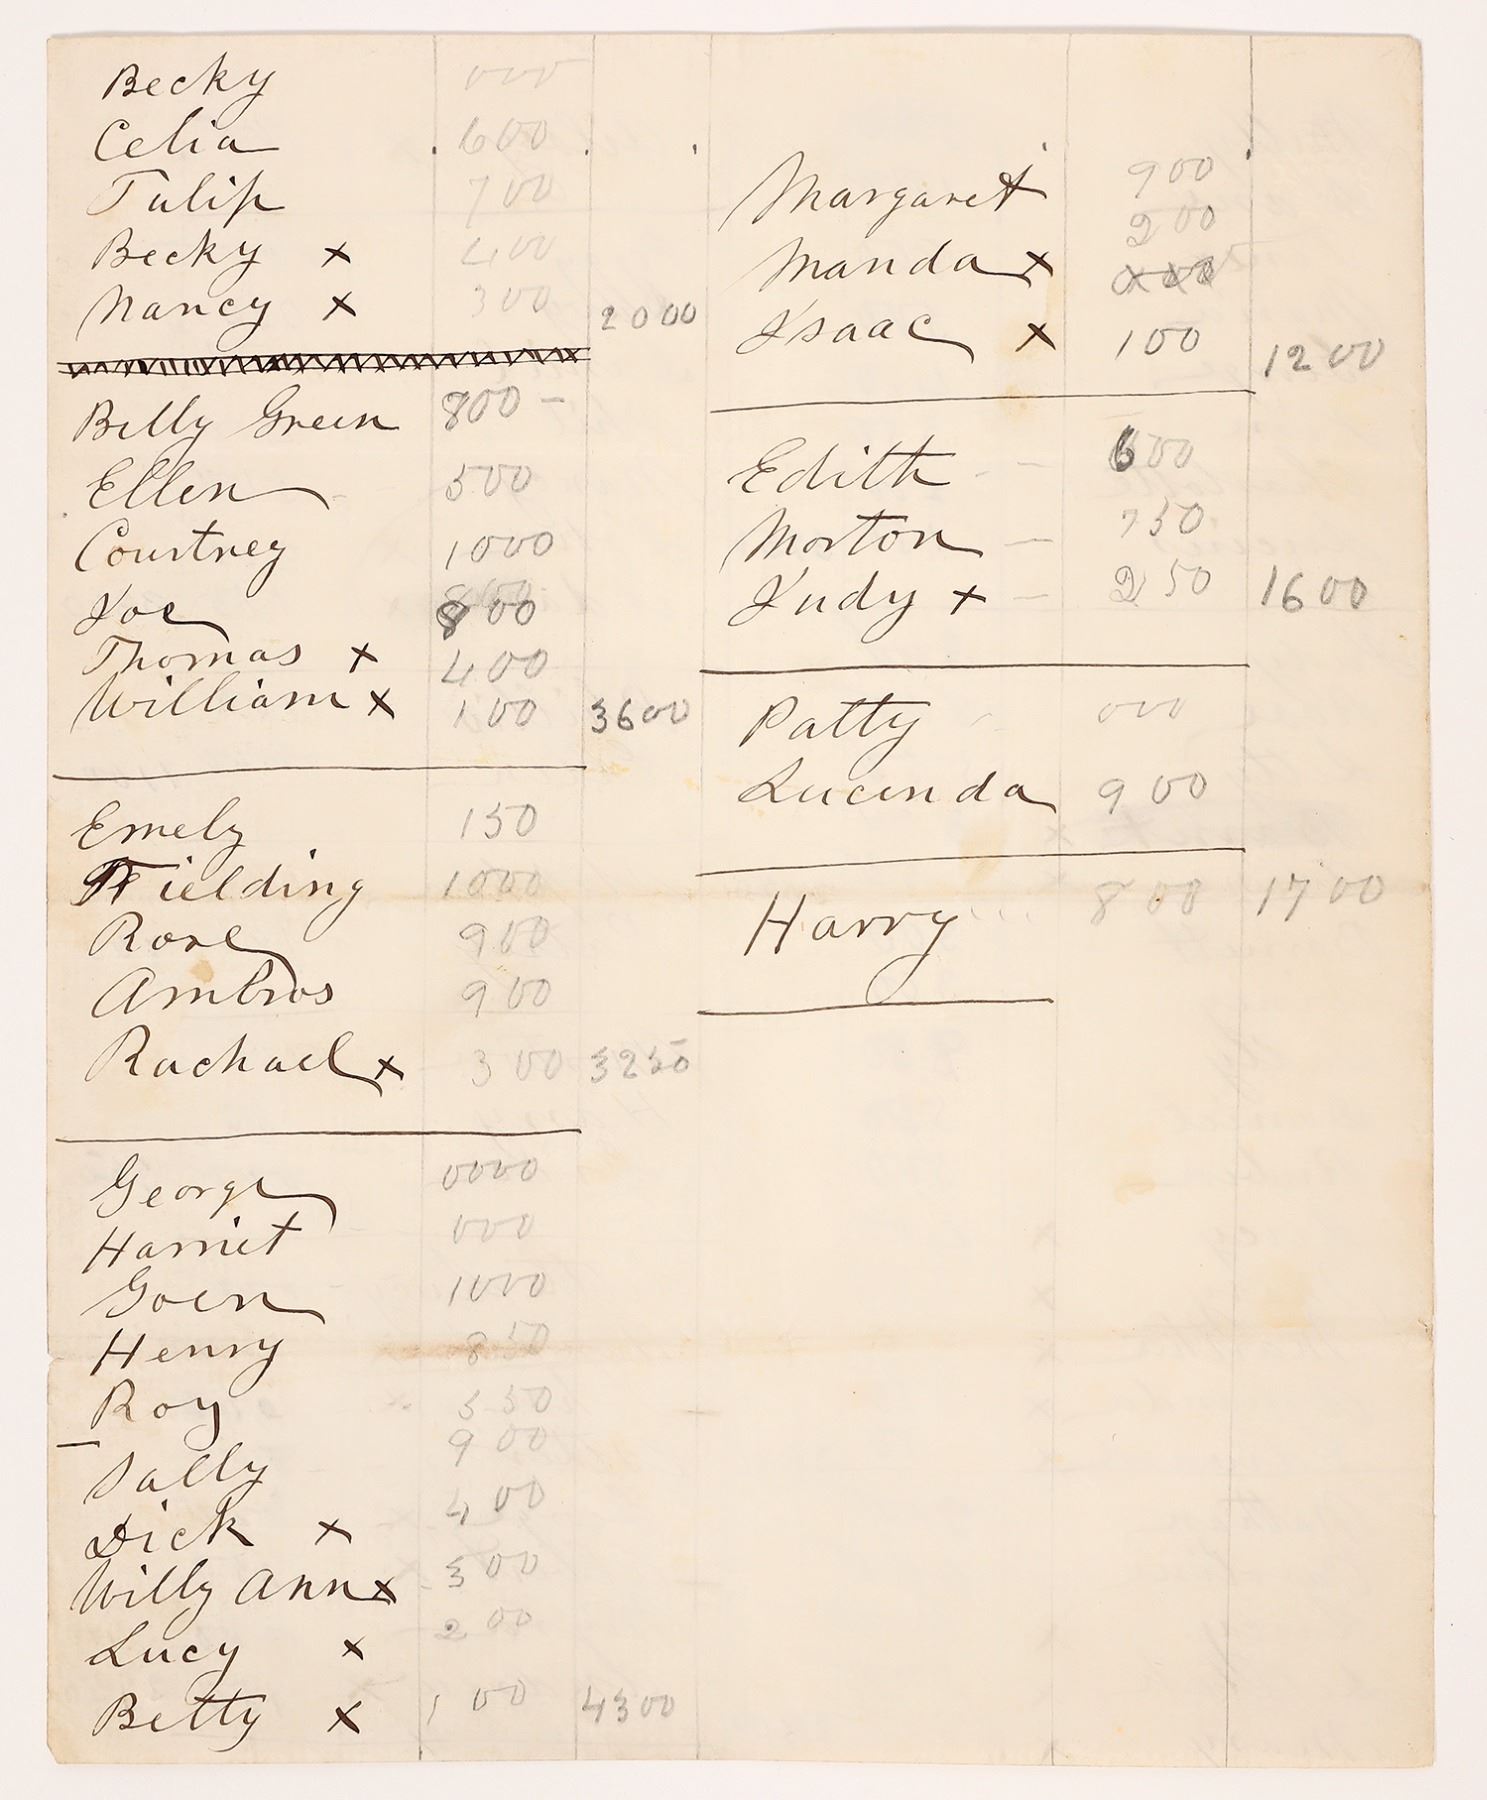 Becky 000
Celia 600
Tulip 700
Becky x 400
Nancy x 300 2000
Billy Green 800 -
Ellen 500
Courtney 1000
Joe 800
Thomas x 400
William x 100 3600
Emely 150
Fielding 1000
Rose 900
Ambros 900
Rachael x 300 3250
George 0000
Harriet 000
Goen 1000
Henry 850
Roy 550
Sally 900
Dick x 400
Willy Ann x 300
Lucy x 200
Betty x 100 4300
Margaret 900
Manda x 200
Isaac x 100 1200
Edith 600
Morton 750
Judy x 250 1600
Patty 000
Lucinda 900
Harry 800 1700